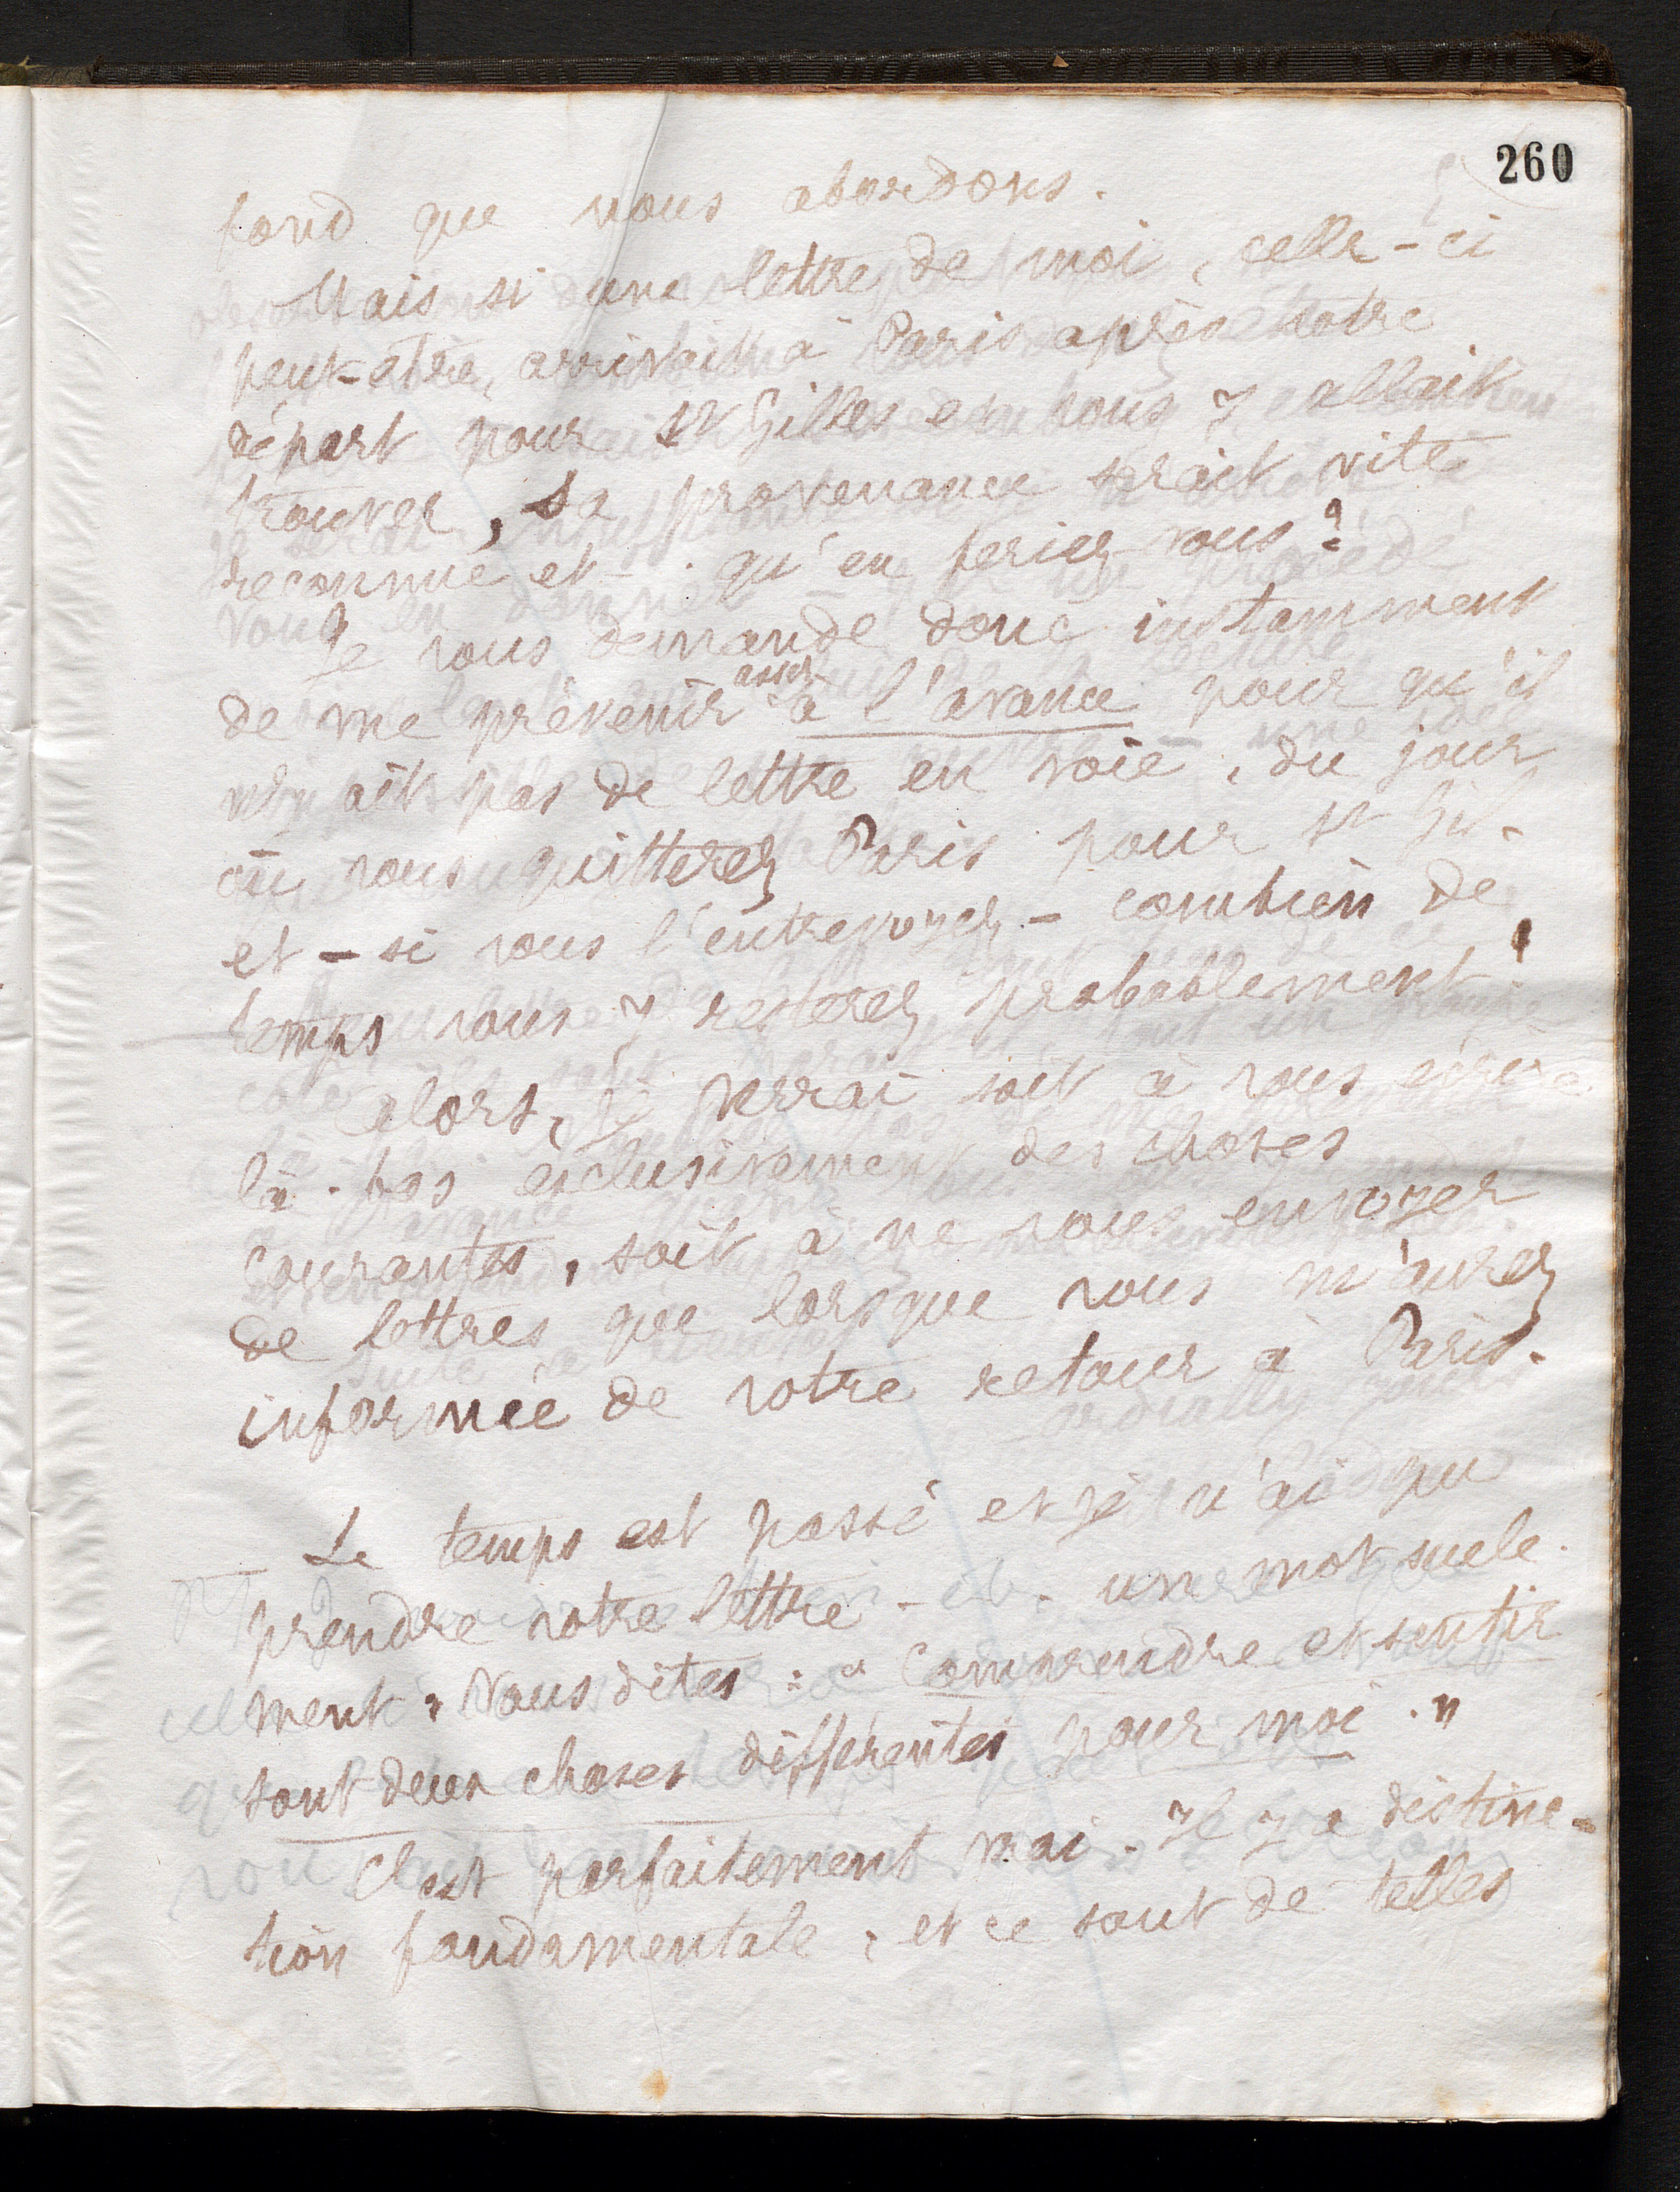 260
fond que nous abordons.
Mais si une lettre de moi, celle-ci
peut-être, arrivait à Paris après votre
départ pour St Gilles et vous y allait
trouver, sa provenance serait vite
reconnue et - qu'en feriez-vous ?
Je vous demande donc instamment
de me prévenir assez à l'avance pour qu'il
n'y ait pas de lettre en voie, du jour
où vous quitterez Paris pour St Gil.
et - si vous l'entrevoyez - combien de
temps vous y resterez probablement !
Alors, je verrai soit à vous écrire
là-bas exclusivement des choses
courantes, soit à ne vous envoyer
de lettres que lorsque vous m'aurez
informée de votre retour à Paris.
Le temps est passé et je n'ai pu
prendre votre lettre - un mot seule-
ment. Vous dites : « Comprendre et sentir
sont deux choses différentes pour moi. »
C'est parfaitement vrai. Il y a distinc-
tion fondamentale, et ce sont de telles